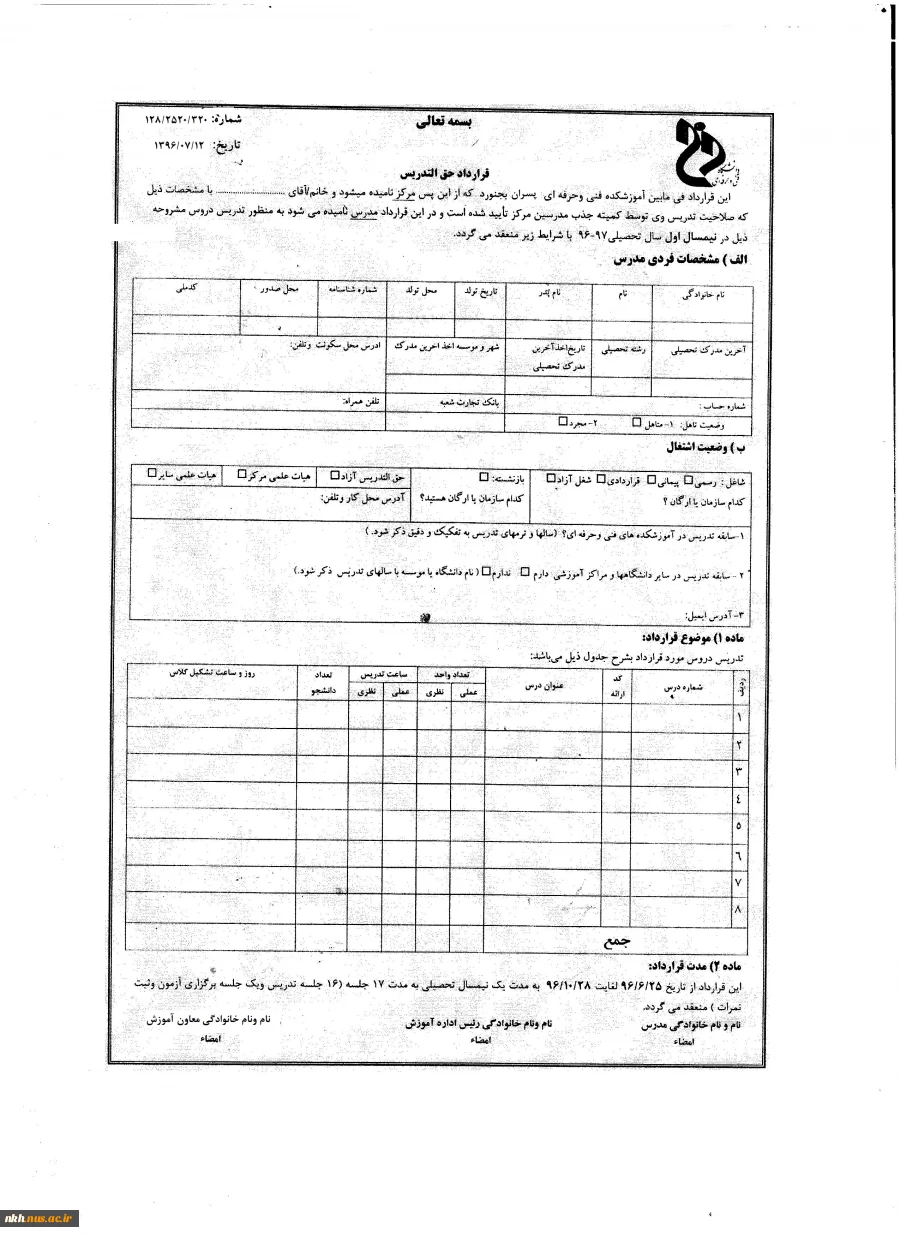 بسمه تعالی
شماره: ۱۲۸/۲۵۲۰/۳۲۰
تاریخ: ۱۳۹۶/۰۷/۱۲
دانشگاه فنی و حرفه‌ای
قرارداد حق التدریس
این قرارداد فی مابین آموزشکده فنی وحرفه ای پسران بجنورد که از این پس مرکز نامیده میشود و خانم/آقای ........................... با مشخصات ذیل
که صلاحیت تدریس وی توسط کمیته جذب مدرسین مرکز تأیید شده است و در این قرارداد مدرس نامیده می شود به منظور تدریس دروس مشروحه
ذیل در نیمسال اول سال تحصیلی ۹۷-۹۶ با شرایط زیر منعقد می گردد.
الف ) مشخصات فردی مدرس
نام خانوادگی نام نام پدر تاریخ تولد محل تولد شماره شناسنامه محل صدور کدملی
آخرین مدرک تحصیلی رشته تحصیلی تاریخ اخذ آخرین شهر و موسسه اخذ اخرین مدرک ادرس محل سکونت وتلفن:
مدرک تحصیلی
شماره حساب : بانک تجارت شعبه تلفن همراه:
وضعیت تاهل: ۱- متاهل ☐ ۲- مجرد ☐
ب ) وضعیت اشتغال
شاغل : رسمی☐ پیمانی☐ قراردادی☐ شغل آزاد☐ بازنشسته: ☐ حق التدریس آزاد☐ هیات علمی مرکز☐ هیات علمی سایر☐
کدام سازمان یا ارگان ؟ کدام سازمان یا ارگان هستید؟ آدرس محل کار وتلفن:
۱-سابقه تدریس در آموزشکده های فنی وحرفه ای؟ (سالها و ترمهای تدریس به تفکیک و دقیق ذکر شود. )
۲ - سابقه تدریس در سایر دانشگاهها و مراکز آموزشی دارم ☐ ندارم☐ ( نام دانشگاه یا موسسه با سالهای تدریس ذکر شود.)
۳- آدرس ایمیل:
ماده ۱) موضوع قرارداد:
تدریس دروس مورد قرارداد بشرح جدول ذیل می‌باشد:
ردیف شماره درس کد ارائه عنوان درس تعداد واحد ساعت تدریس تعداد دانشجو روز و ساعت تشکیل کلاس
عملی نظری عملی نظری
۱
۲
۳
٤
۵
٦
۷
۸
جمع
ماده ۲) مدت قرارداد:
این قرارداد از تاریخ ۹۶/۶/۲۵ لغایت ۹۶/۱۰/۲۸ به مدت یک نیمسال تحصیلی به مدت ۱۷ جلسه (۱۶ جلسه تدریس ویک جلسه برگزاری آزمون وثبت
نمرات ) منعقد می گردد.
نام و نام خانوادگی مدرس نام ونام خانوادگی رئیس اداره آموزش نام ونام خانوادگی معاون آموزش
امضاء امضاء امضاء
nkh.nus.ac.ir